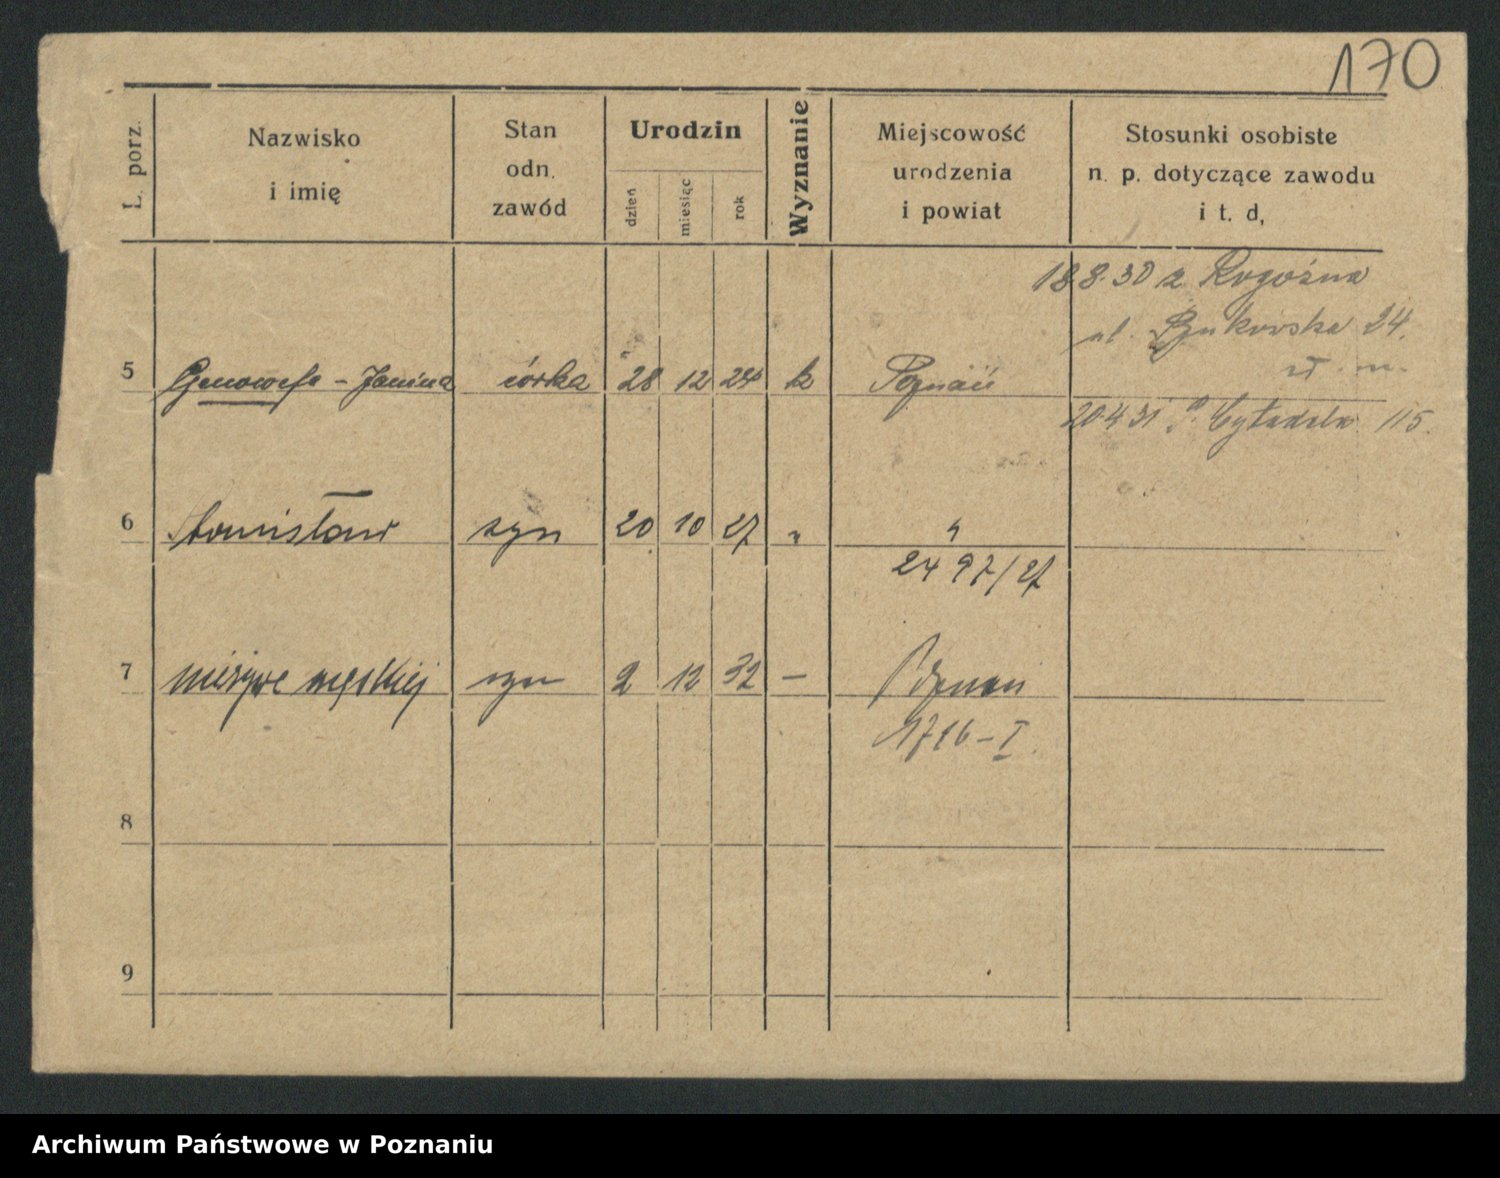 170
L. porz.
Nazwisko
i imię
Stan
odn.
zawód
Urodzin
dzień
miesiąc
rok
Wyznanie
Miejscowość
urodzenia
i powiat
Stosunki osobiste
n. p. dotyczące zawodu
i t. d,
18.8.30 z Rogoźna
ul. Bukowska 24.
5 Genowefa - Janina córka 28 12 24 k Poznań
20.4.31 Cytadela 115.
6 Stanisław syn 20 10 27 " "
2497/27
7 nieżywe męskiej syn 2 12 32 — Poznań
1716-I.
8
9
Archiwum Państwowe w Poznaniu